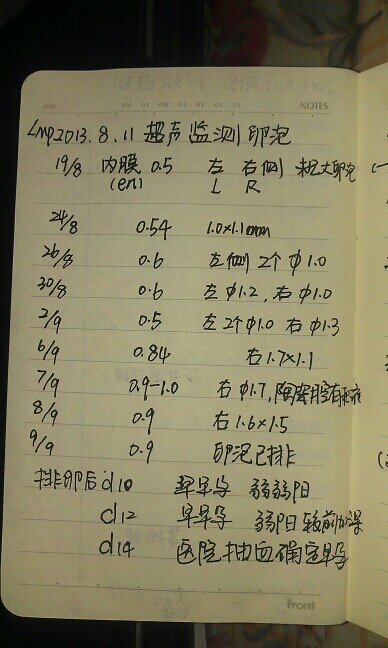 NOTES
LMP2013.8.11 超声监测卵泡
19/8 内膜 0.5 左 右侧 大卵泡
(cm) L R
24/8 0.54 1.0x1.1mm
26/8 0.6 左侧 2个 φ1.0
30/8 0.6 左 φ1.2, 右 φ1.0
2/9 0.5 左 2个φ1.0 右 φ1.3
6/9 0.84 右 1.7x1.1
7/9 0.9-1.0 右 φ1.7, 陶窝有积液
8/9 0.9 右 1.6x1.5
9/9 0.9 卵泡已排
排卵后 d10 早早孕 弱弱阳
d12 早早孕 弱阳 较前加深
d14 医院抽血确定早孕
front